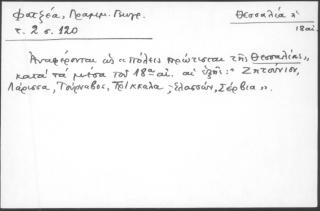 Φατζέα, Γραμμ. Γεωγρ.
τ. 2 σ. 120
Θεσσαλία λ'
18 αἰ.
Ἀναφέρονται ὡς "πόλεις πρώτισται τῆς Θεσσαλίας"
κατὰ τὰ μέσα τοῦ 18ου αἰ. αἱ ἑξῆς: "Ζητούνιον,
Λάρισσα, Τούρναβος, Τρίκκαλα, Ἐλασσών, Σέρβια".